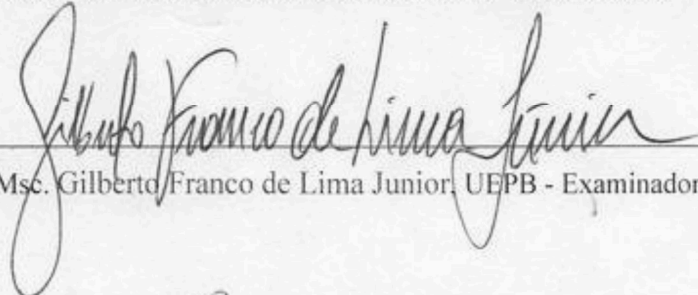 Gilberto Franco de Lima Júnior
Msc. Gilberto Franco de Lima Junior, UEPB - Examinador